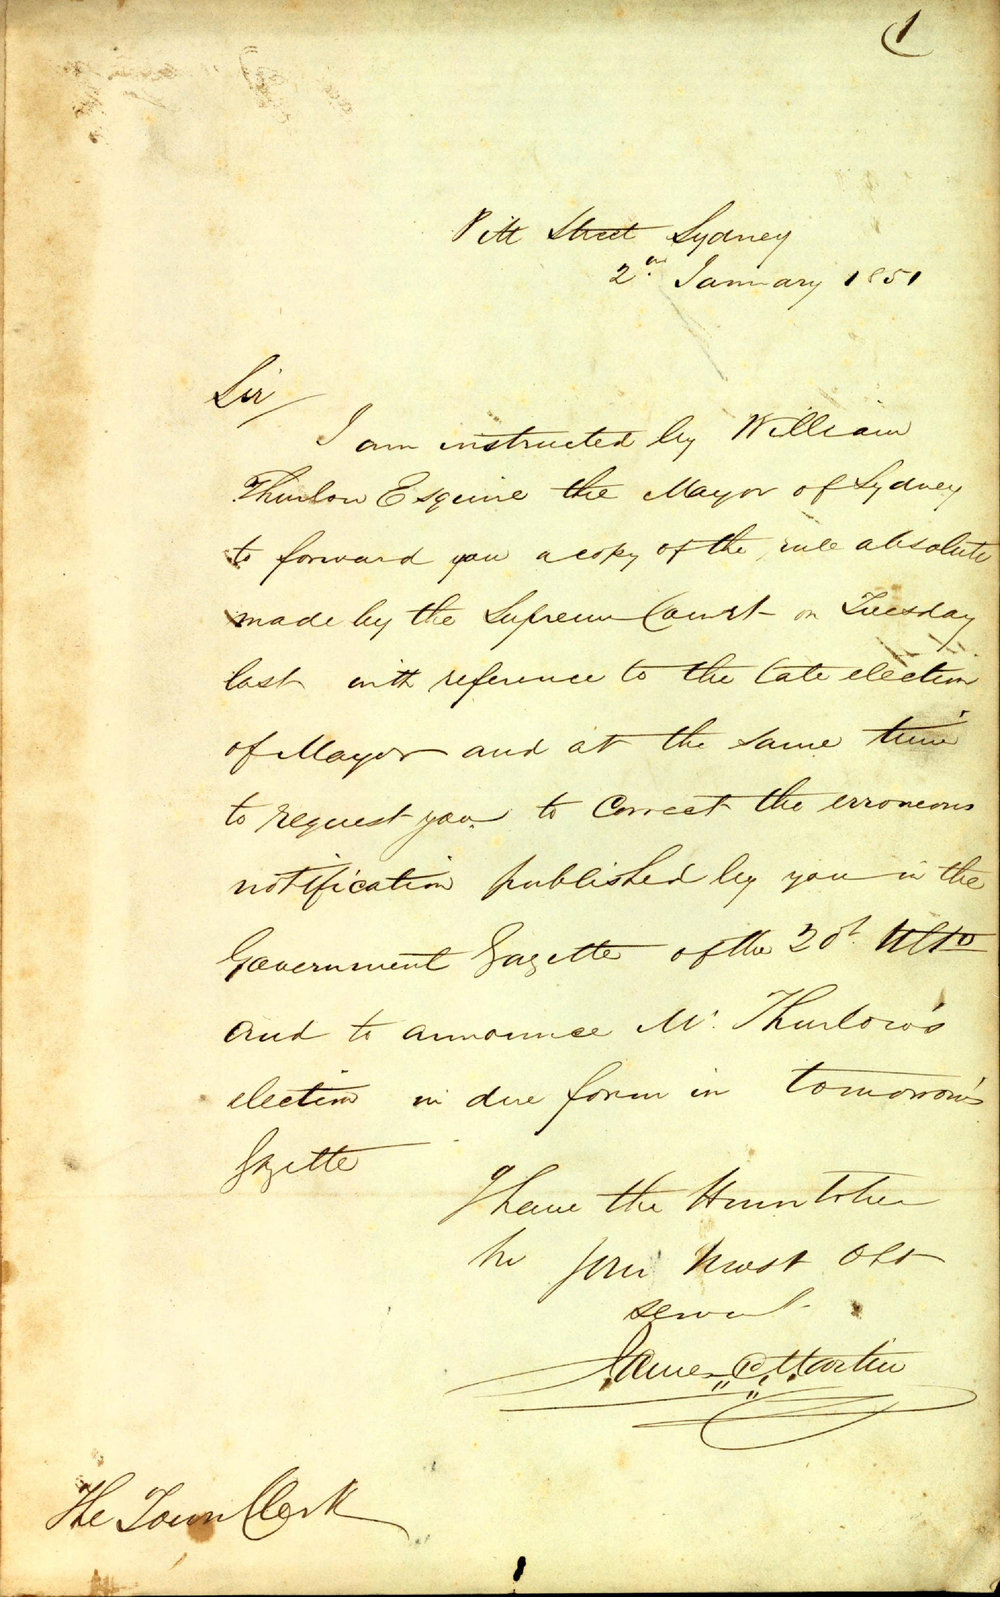 1
Pitt Street Sydney
2nd January 1851
Sir/
I am instructed by William
Thurlow Esquire the Mayor of Sydney
to forward you a copy of the rule absolute
made by the Supreme Court on Tuesday
last with reference to the late election
of Mayor and at the same time
to request you to correct the erroneous
notification published by you in the
Government Gazette of the 20th Ulto
and to announce Mr. Thurlow's
election in due form in tomorrow's
Gazette
I have the Honor to be
Sir your most Obt
servant
James Martin
The Town Clerk